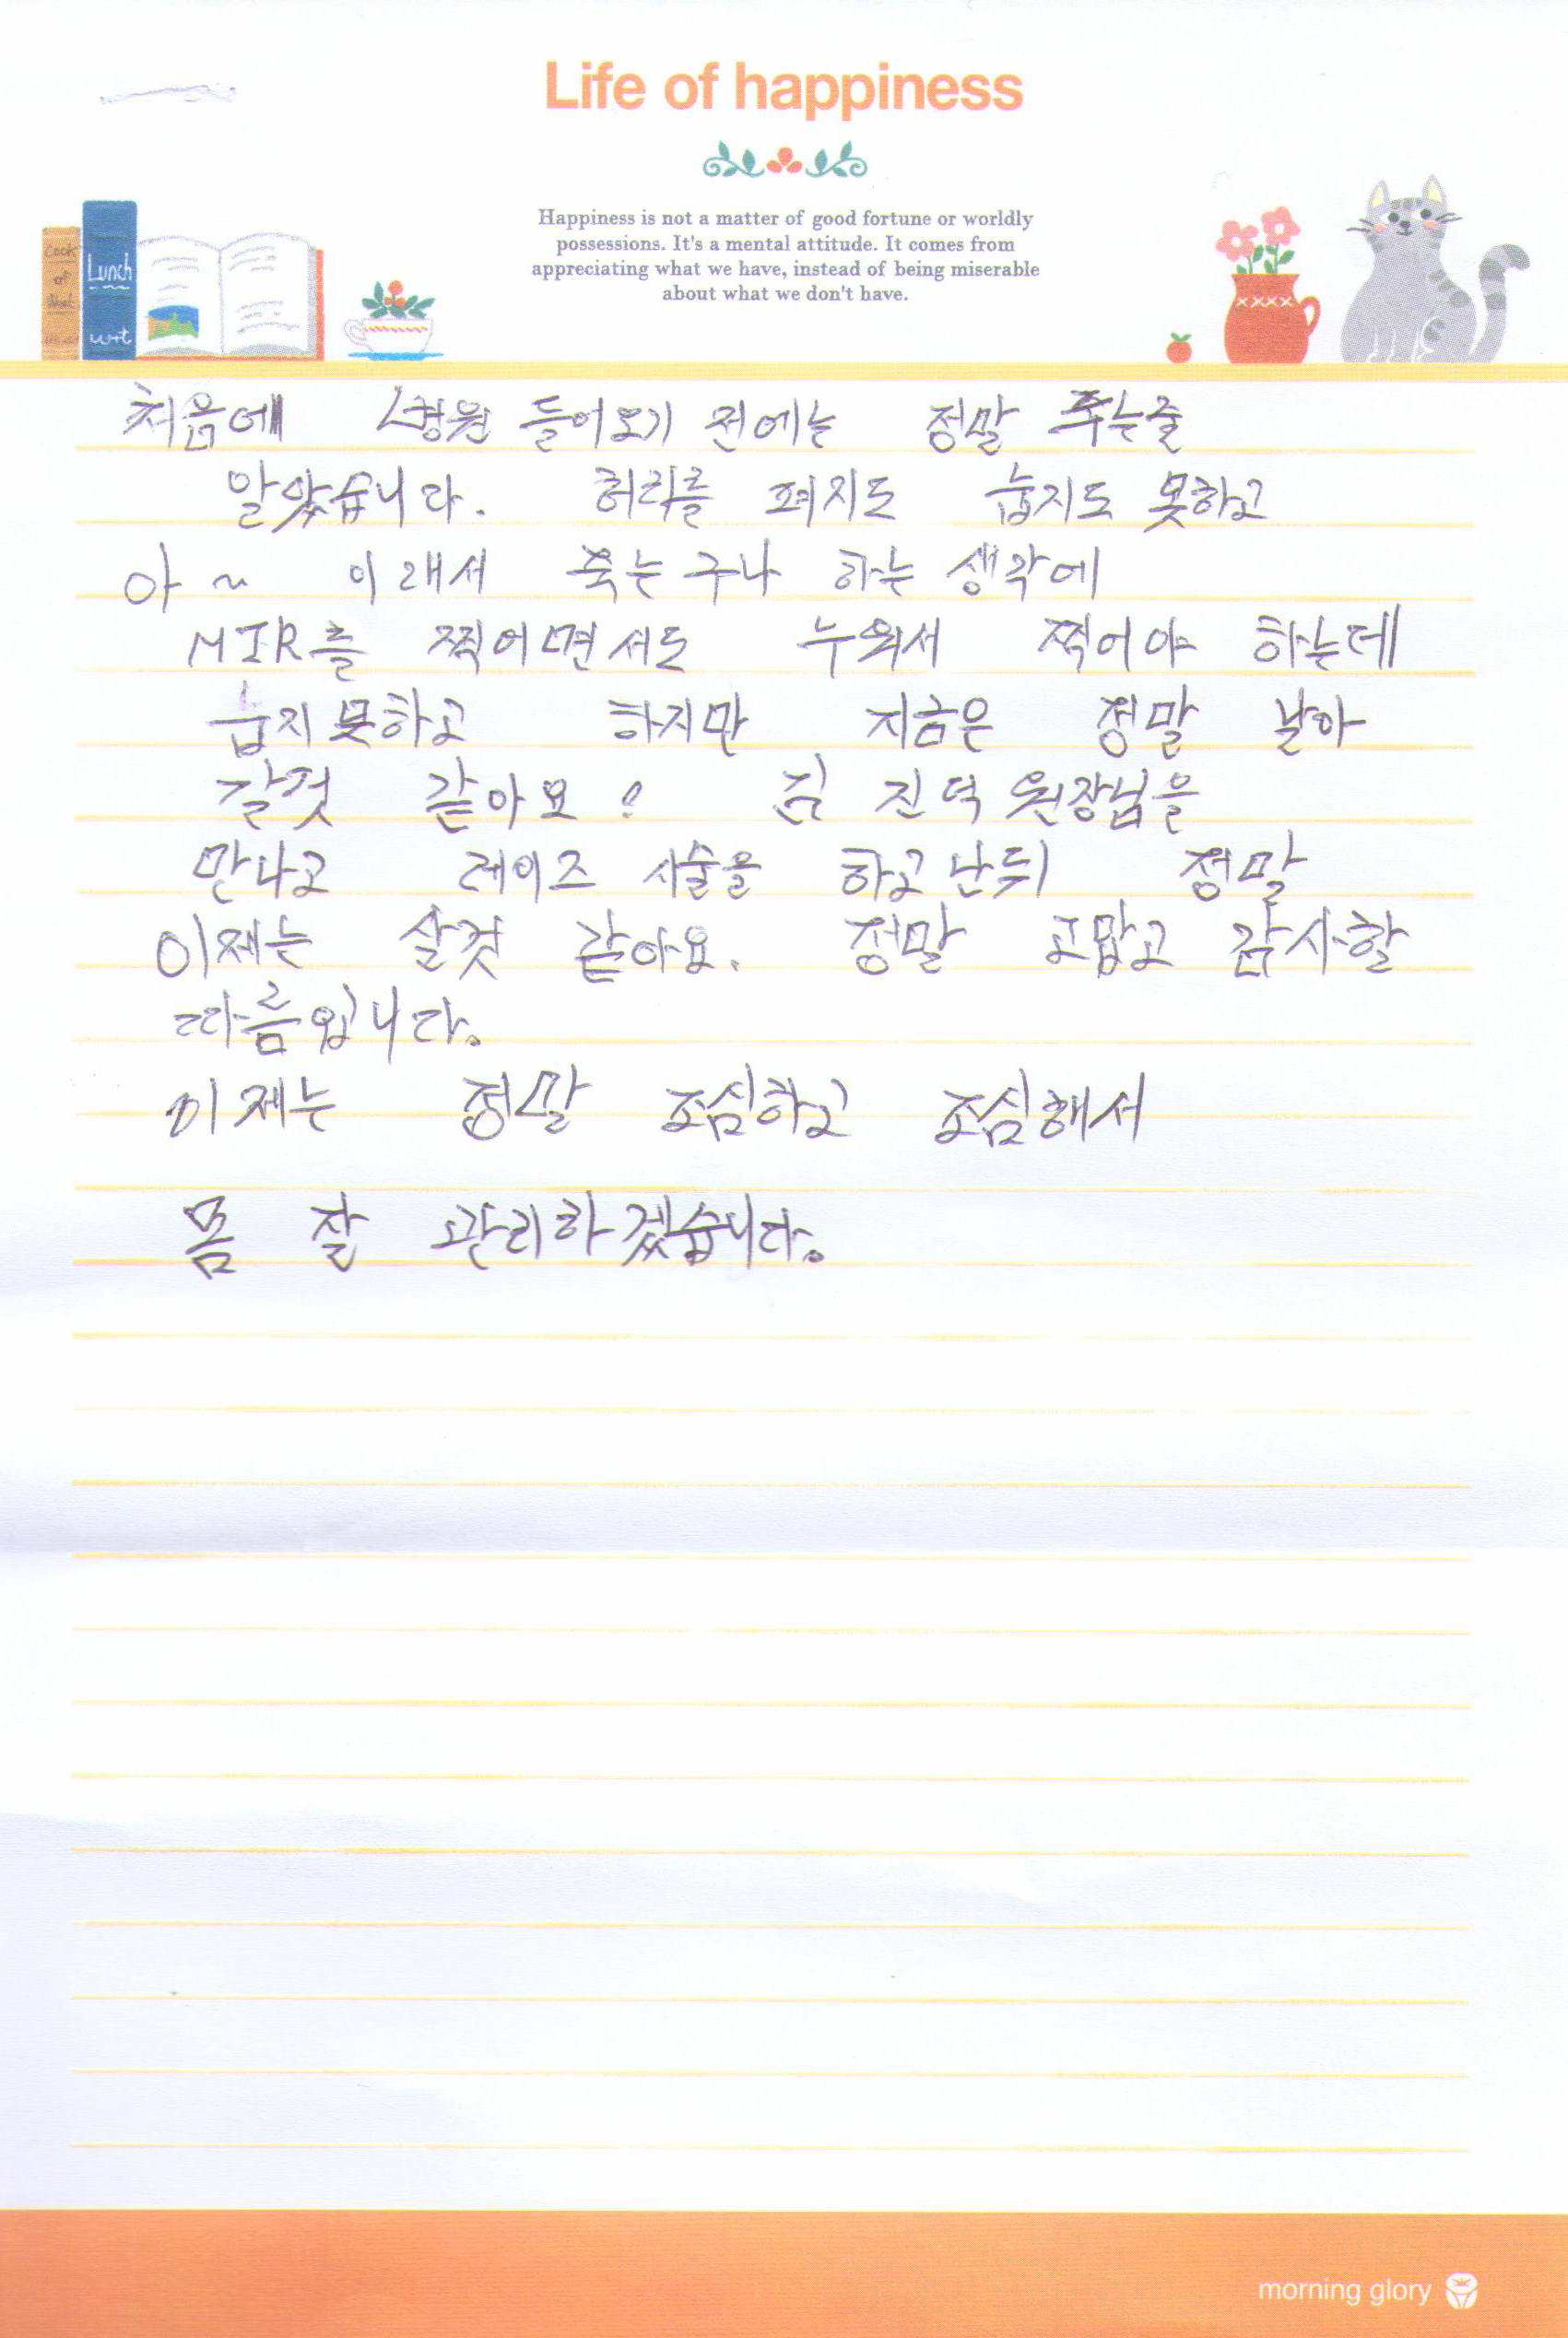 Life of happiness
Happiness is not a matter of good fortune or worldly
possessions. It's a mental attitude. It comes from
appreciating what we have, instead of being miserable
about what we don't have.
Cook
of
Lunch
처음에 병원 들어오기 전에는 정말 죽는줄
알았습니다. 허리를 펴지도 눕지도 못하고
아~ 이래서 죽는구나 하는 생각에
MIR를 찍어면서도 누워서 찍어야 하는데
눕지못하고 하지만 지금은 정말 날아
갈것 같아요! 김진덕 원장님을
만나고 레이즈 시술을 하고난뒤 정말
이제는 살것 같아요. 정말 고맙고 감사할
따름입니다.
이제는 정말 조심하고 조심해서
몸 잘 관리하겠습니다.
morning glory